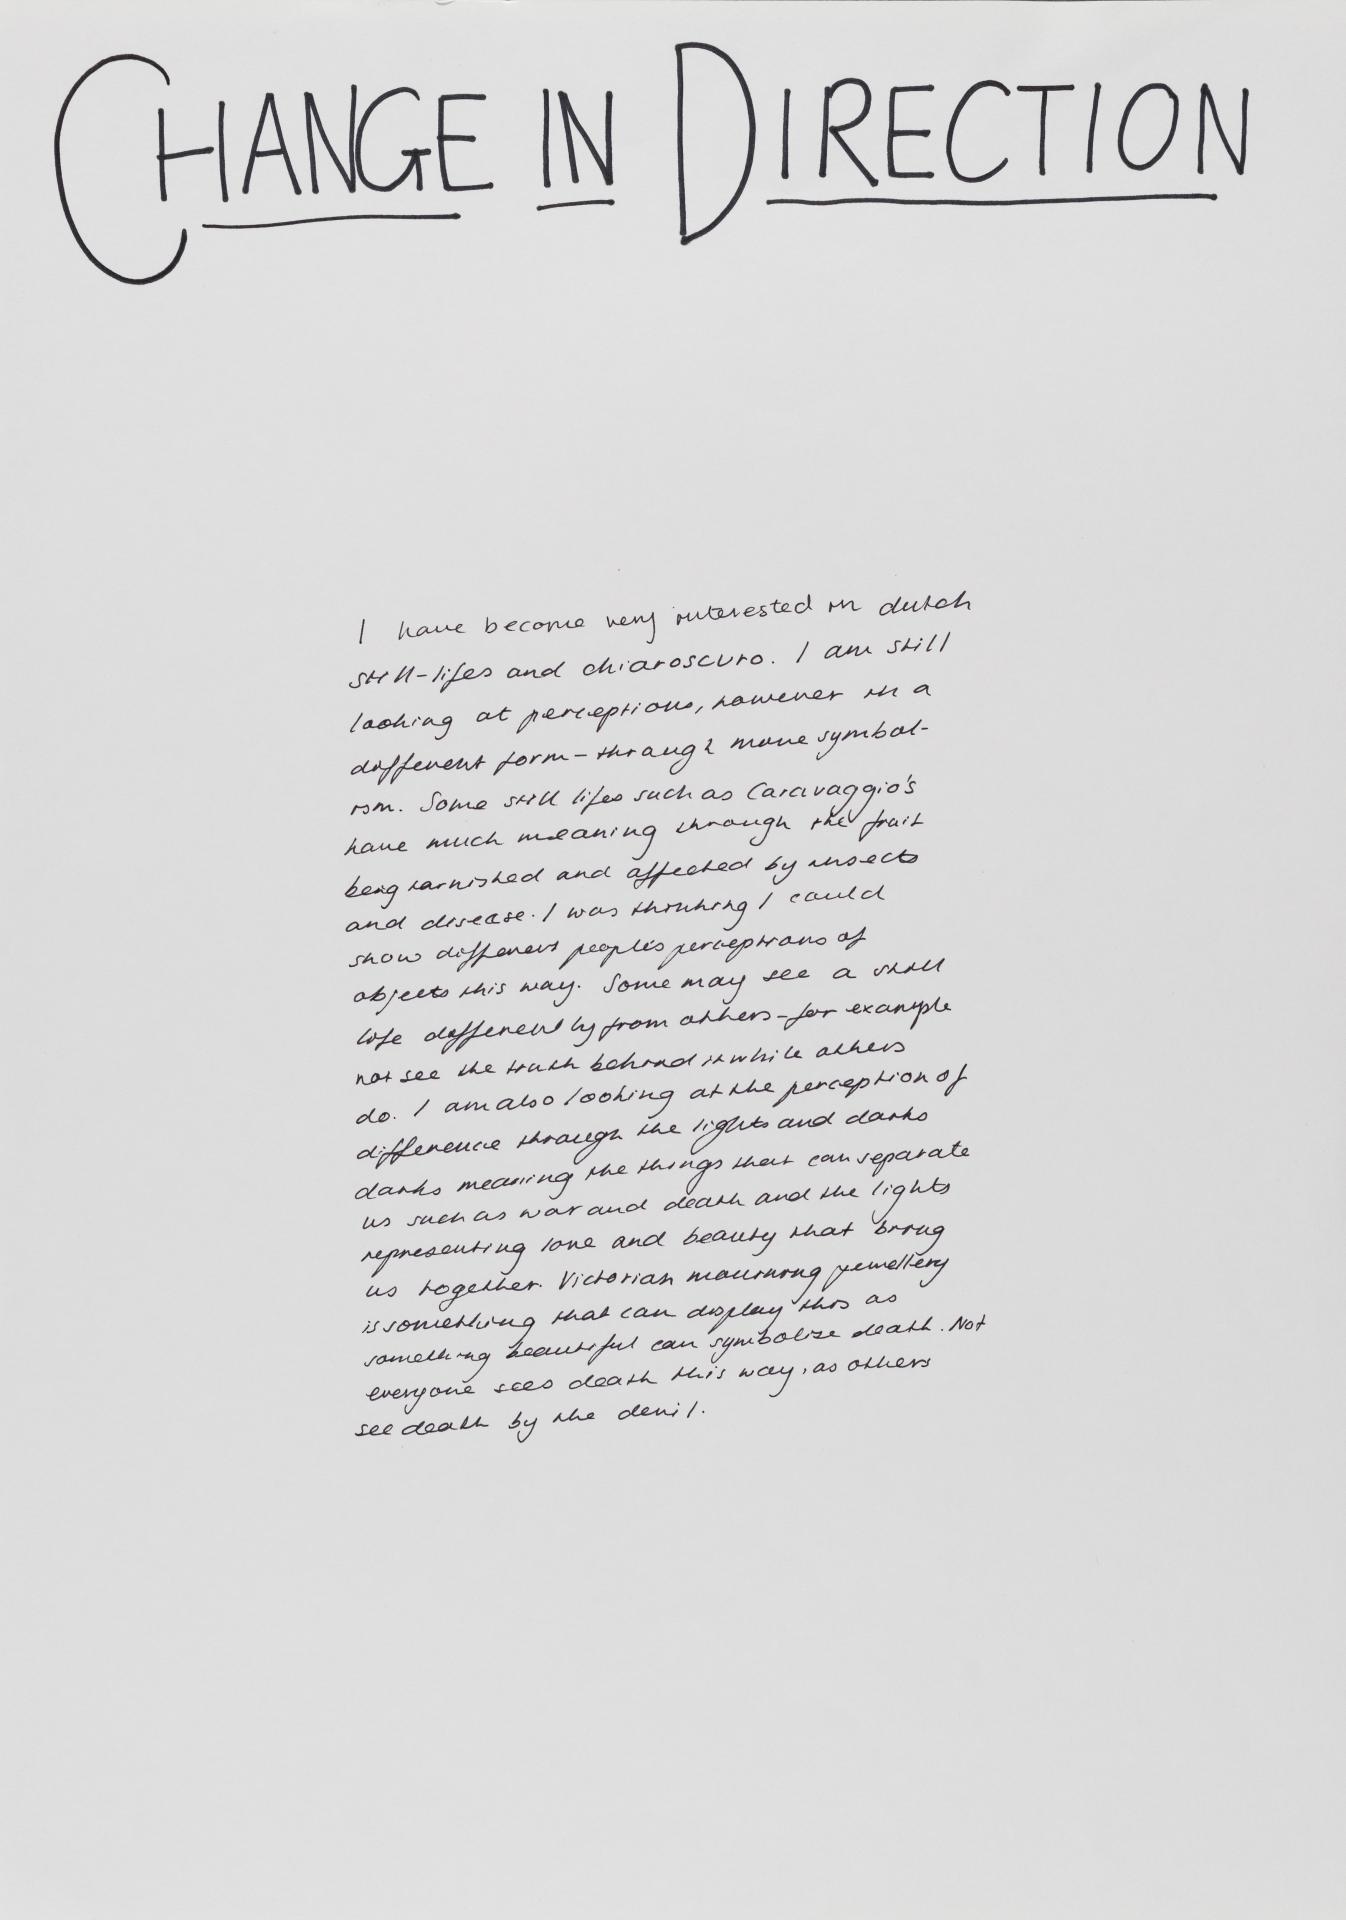 CHANGE IN DIRECTION
I have become very interested in dutch
still-lifes and chiaroscuro. I am still
looking at perceptions, however in a
different form - through more symbol-
ism. Some still lifes such as Caravaggio's
have much meaning through the fruit
being tarnished and affected by insects
and disease. I was thinking I could
show different people's perceptions of
objects this way. Some may see a still
life differently from others - for example
not see the truth behind it while others
do. I am also looking at the perception of
difference through the lights and darks
darks meaning the things that can separate
us such as war and death and the lights
representing love and beauty that bring
us together. Victorian mourning jewellery
is something that can display this as
something beautiful can symbolise death. Not
everyone sees death this way, as others
see death by the devil.